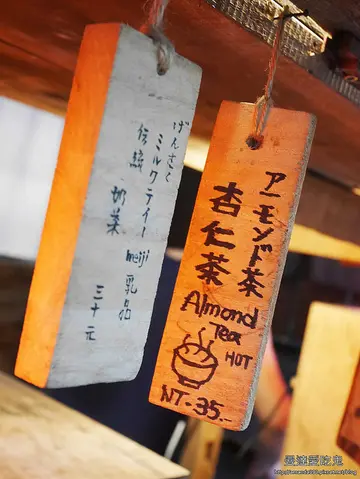 げんさく
ミルクティー meiji 乳品
伝統
奶茶
三十元
アーモンド茶
杏仁茶
Almond
Tea
HOT
NT.35.